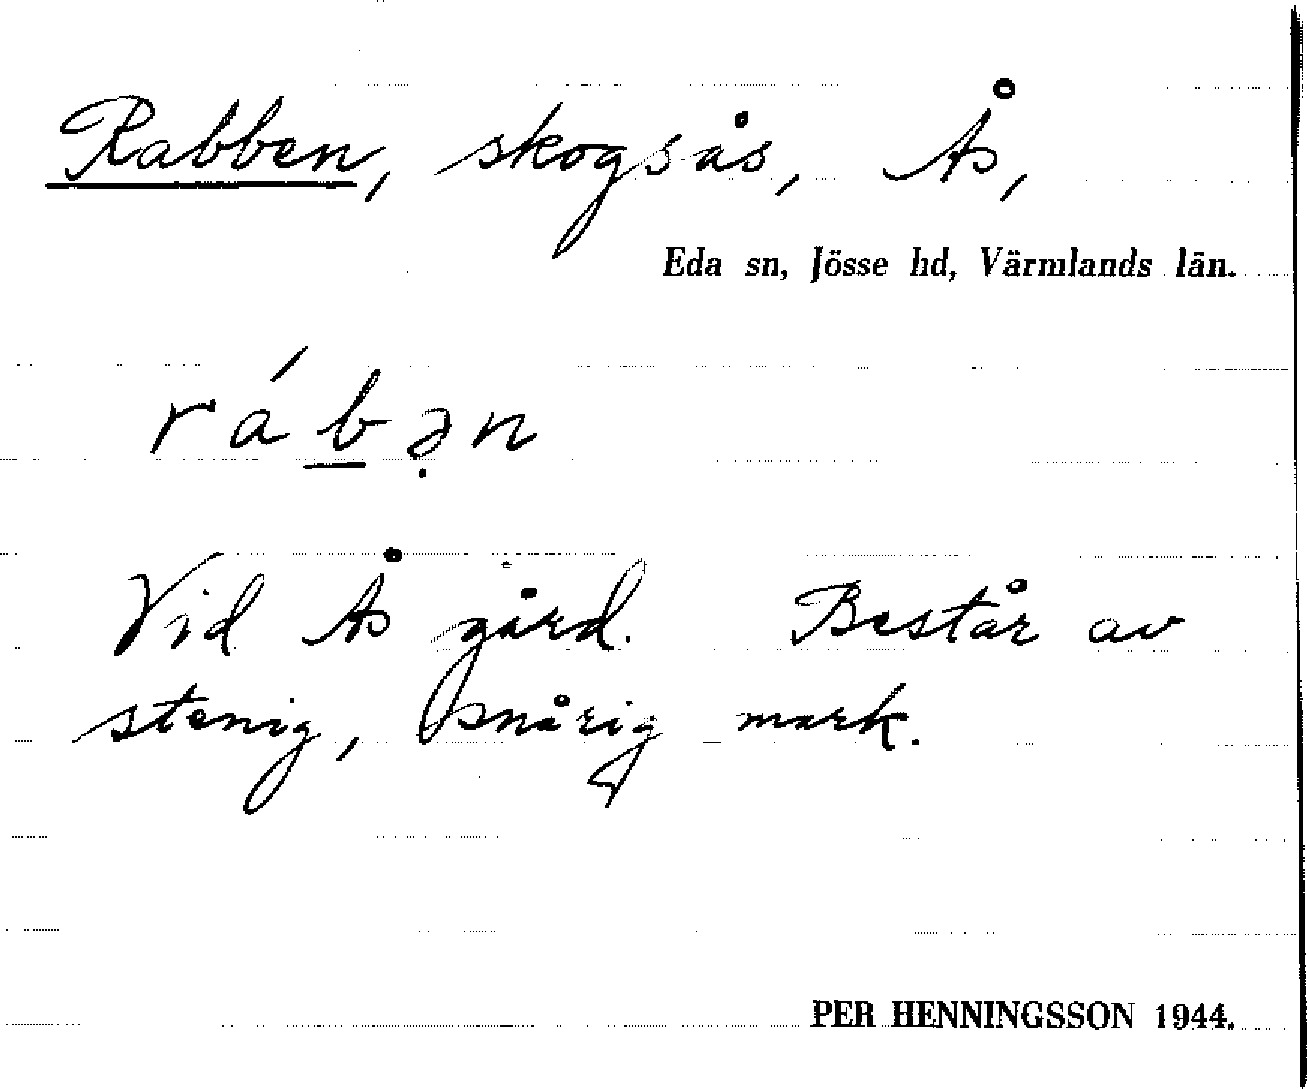 Rabben, skogsås, Ås,
Eda sn, Jösse hd, Värmlands län.
rábə̣n
Vid Ås gård. Består av
stenig, snårig mark.
PER HENNINGSSON 1944.